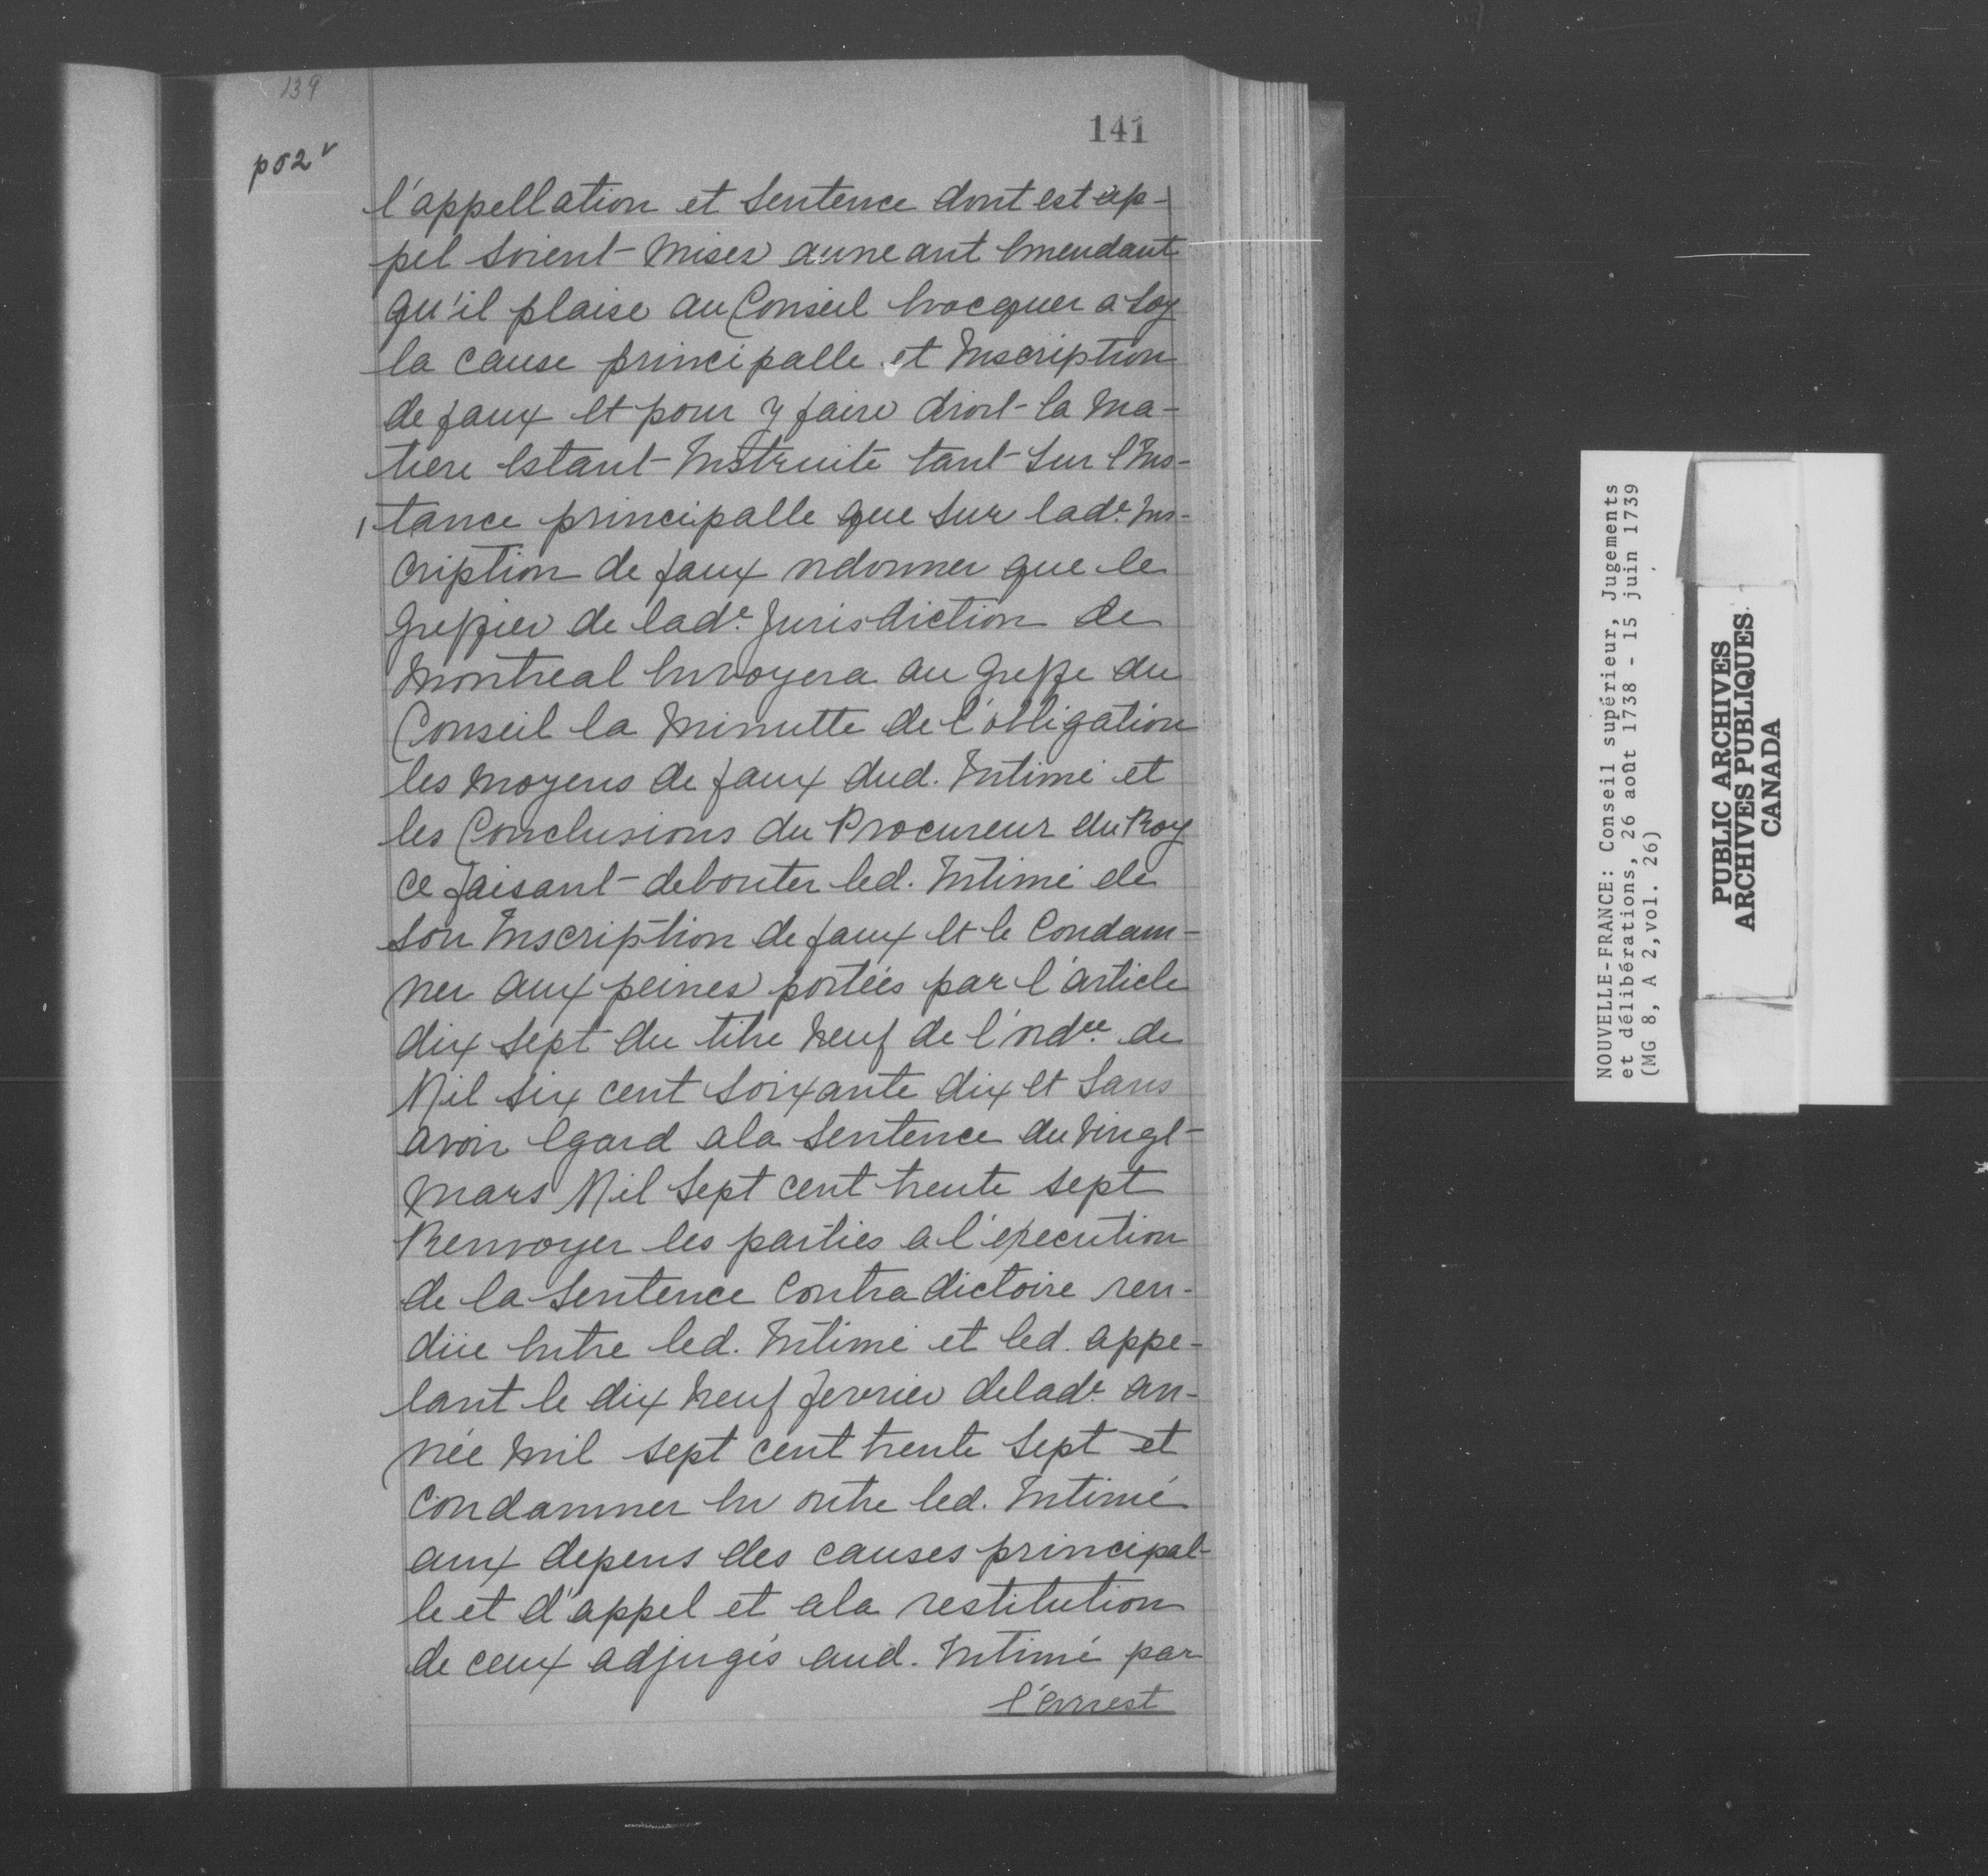 139
141
p 52 v
l'appellation et Sentence dont est ap-
pel soient mises auneant Emendant
qu'il plaise au Conseil Evocquer a soy
la cause principalle et Inscription
de faux et pour y faire droit la Ma-
tiere Estant Instruite tant sur l'Ins-
tance principalle que sur lade. Ins-
cription de faux ordonner que le
greffier de lade. Jurisdiction de
Montreal Envoyera au greffe du
Conseil la Minutte de l'obligation
les moyens de faux dud. Intimé et
les Conclusions du Procureur du Roy
ce faisant debouter led. Intimé de
son Inscription de faux et le Condam-
ner aux peines portées par l'article
dix sept du titre neuf de l'ordce. de
Mil six cent soixante dix et sans
avoir Egard a la Sentence du vingt
Mars Mil sept cent trente sept
Renvoyer les parties a l'execution
de la Sentence Contradictoire ren-
düe Entre led. Intimé et led. appe-
lant le dix neuf fevrier delade. an-
née mil sept cent trente sept et
condamner En outre led. Intimé
aux depens des causes principal-
le et d'appel et a la restitution
de ceux adjugés aud. Intimé par
l'arrest
NOUVELLE-FRANCE: Conseil supérieur, Jugements
et délibérations, 26 août 1738 - 15 juin 1739
(MG 8, A 2, vol. 26)
PUBLIC ARCHIVES
ARCHIVES PUBLIQUES
CANADA